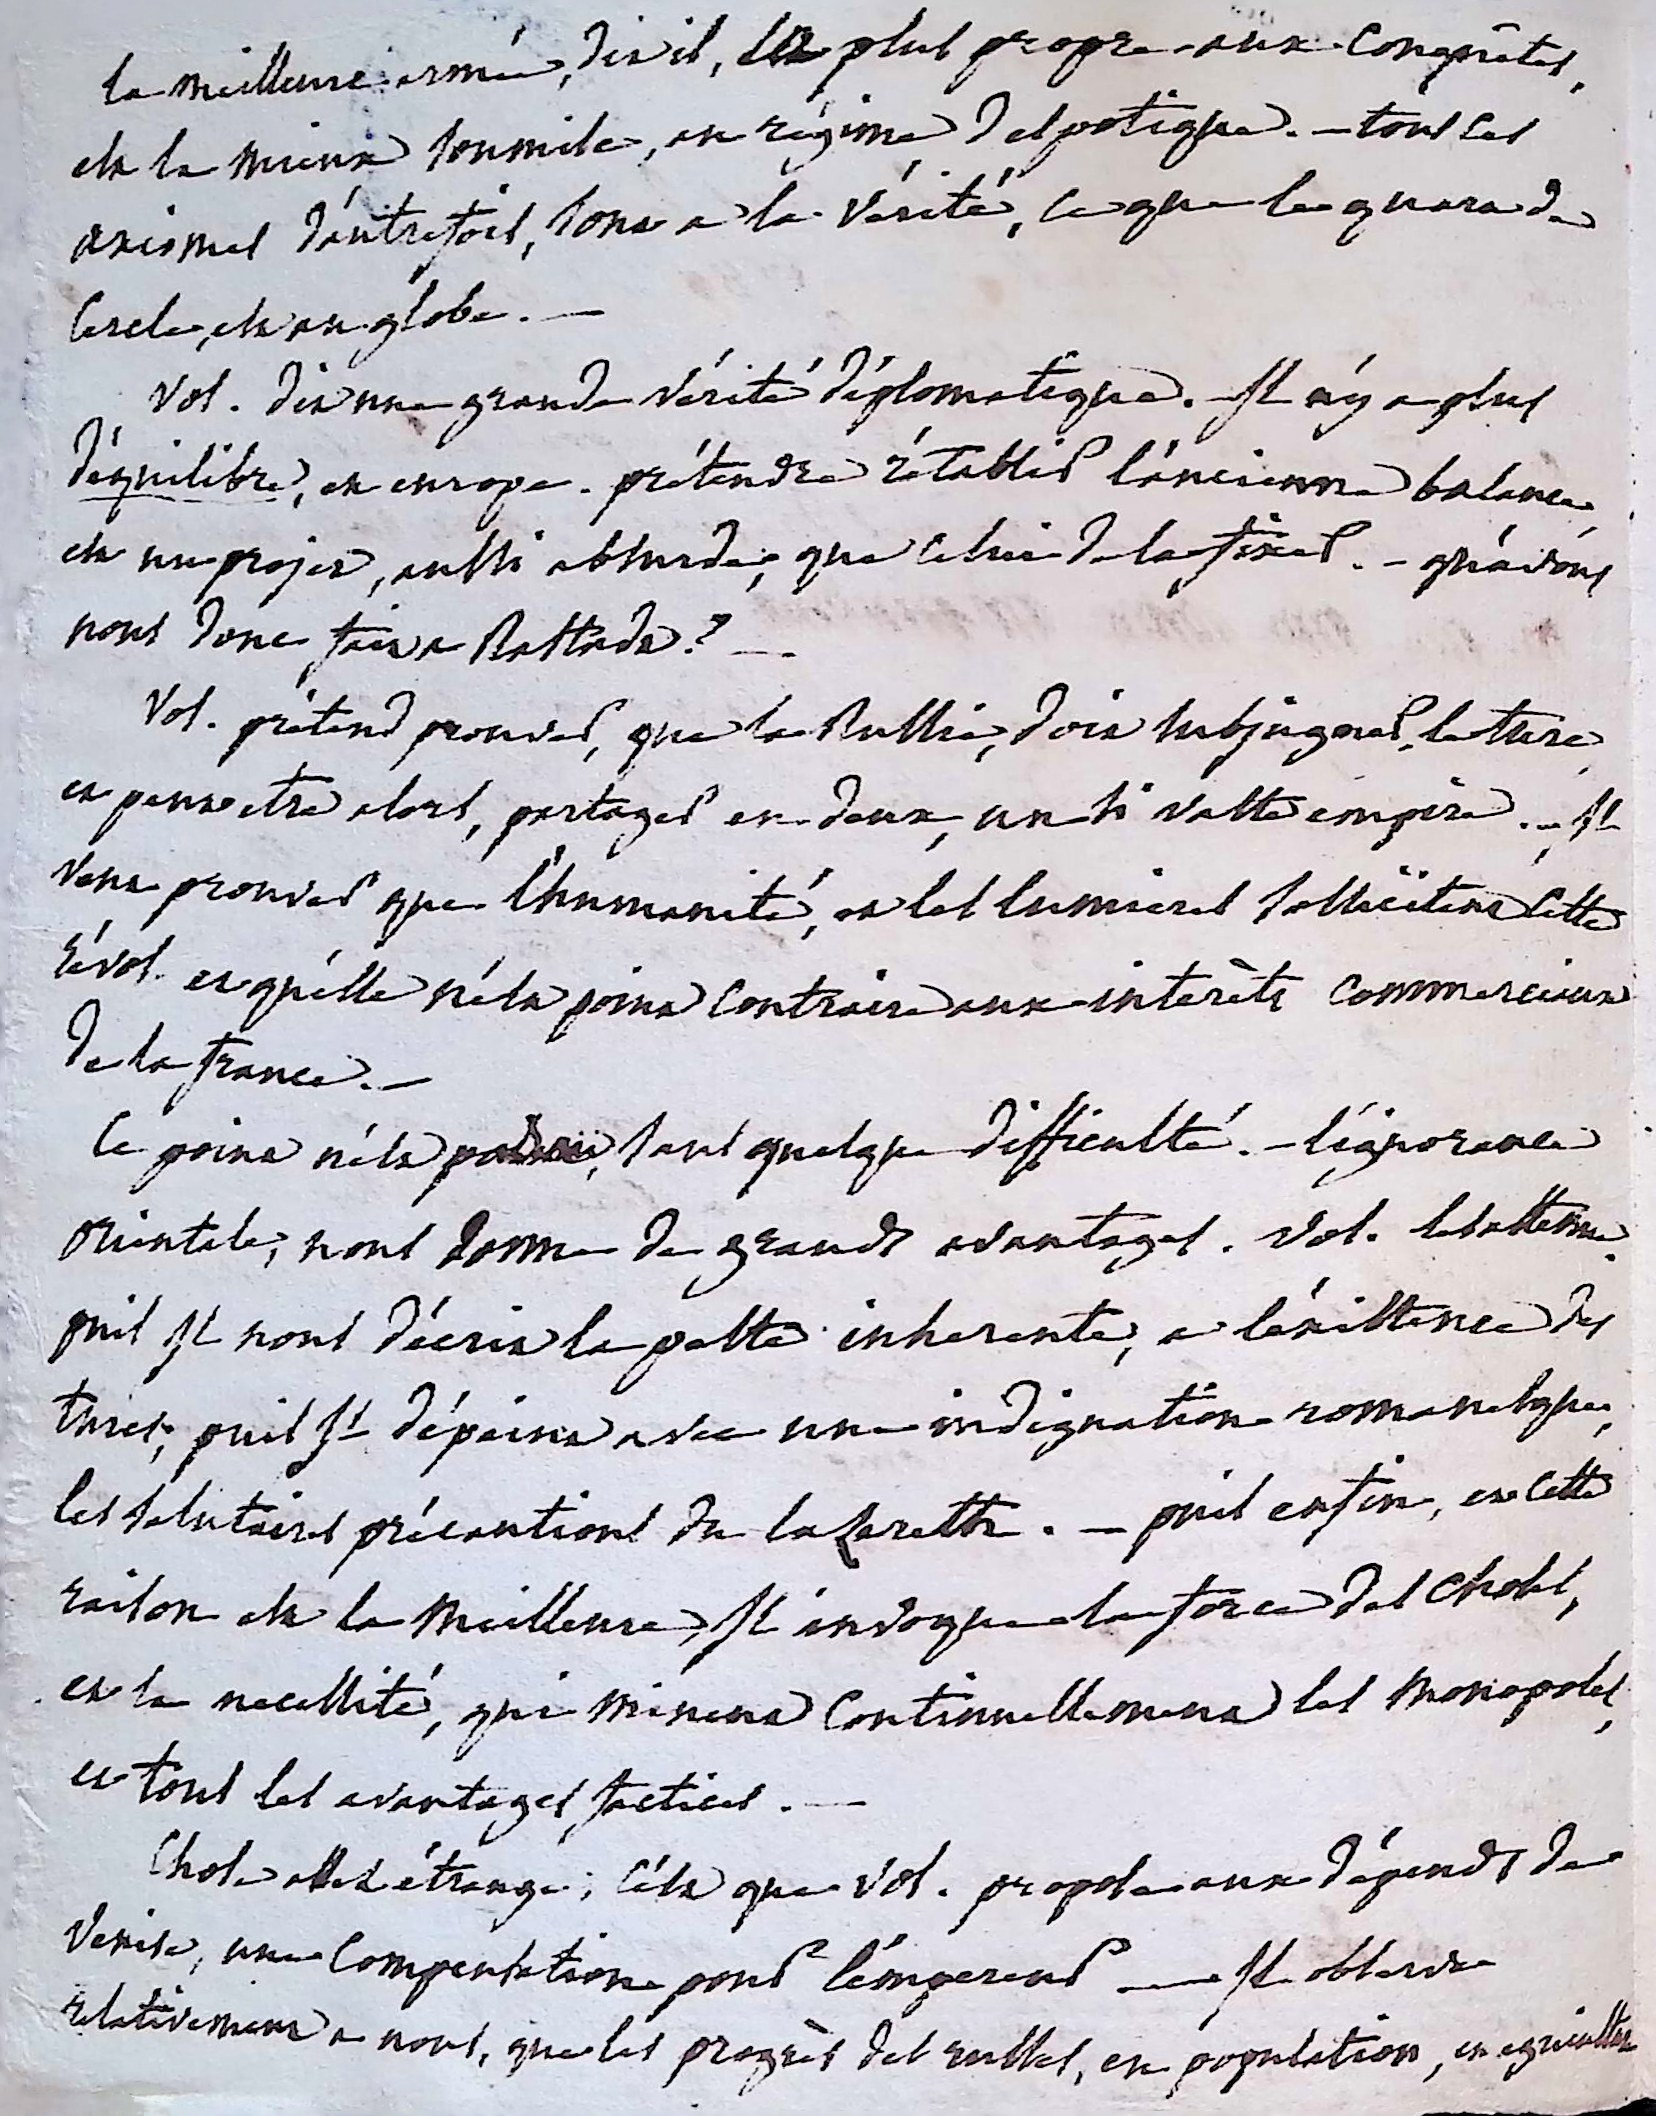 la meilleure armée, dit il, la plus propre aux conquêtes,
est la mieux soumise, au régime despotique. — tous ces
axiomes d'autrefois, sont a la vérité, ce que le quarré de
cercle, est au globe. —
Vol. dit une grande vérité diplomatique. Il n'y a plus
d'équilibre, en europe. prétendre rétablir l'ancienne balance
est un projet, aussi absurde, que celui de la fixer. — qu'avons
nous donc fait a Rastadt? —
Vol. prétend prouver, que la Russie, doit subjuguer, le turc,
et peut etre alors, partager en deux, un si vaste empire. — Il
veut prouver que l'humanité, et les lumieres sollicitent cette
révol. et qu'elle n'est point contraire aux intérêts commerciaux
de la france. —
Ce point n'est pas sans quelque difficulté. — l'ignorance
orientale, nous donne de grands avantages. Vol.
puis Il nous décrit la peste inherente, a l'existence des
turcs, puis Il dépeint avec une indignation romanesque,
les salutaires précautions du lazarette. — puis enfin, et cette
raison est la meilleure, Il invoque la force des choses,
et la necessité, qui minent continuellement les monopoles,
et tous les avantages factices. —
Chose assez étrange, c'est que Vol. propose aux dépends de
Venise, une compensation pour l'empereur — Il observe
relativement a nous, que les progrès des russes, en population, en agriculture